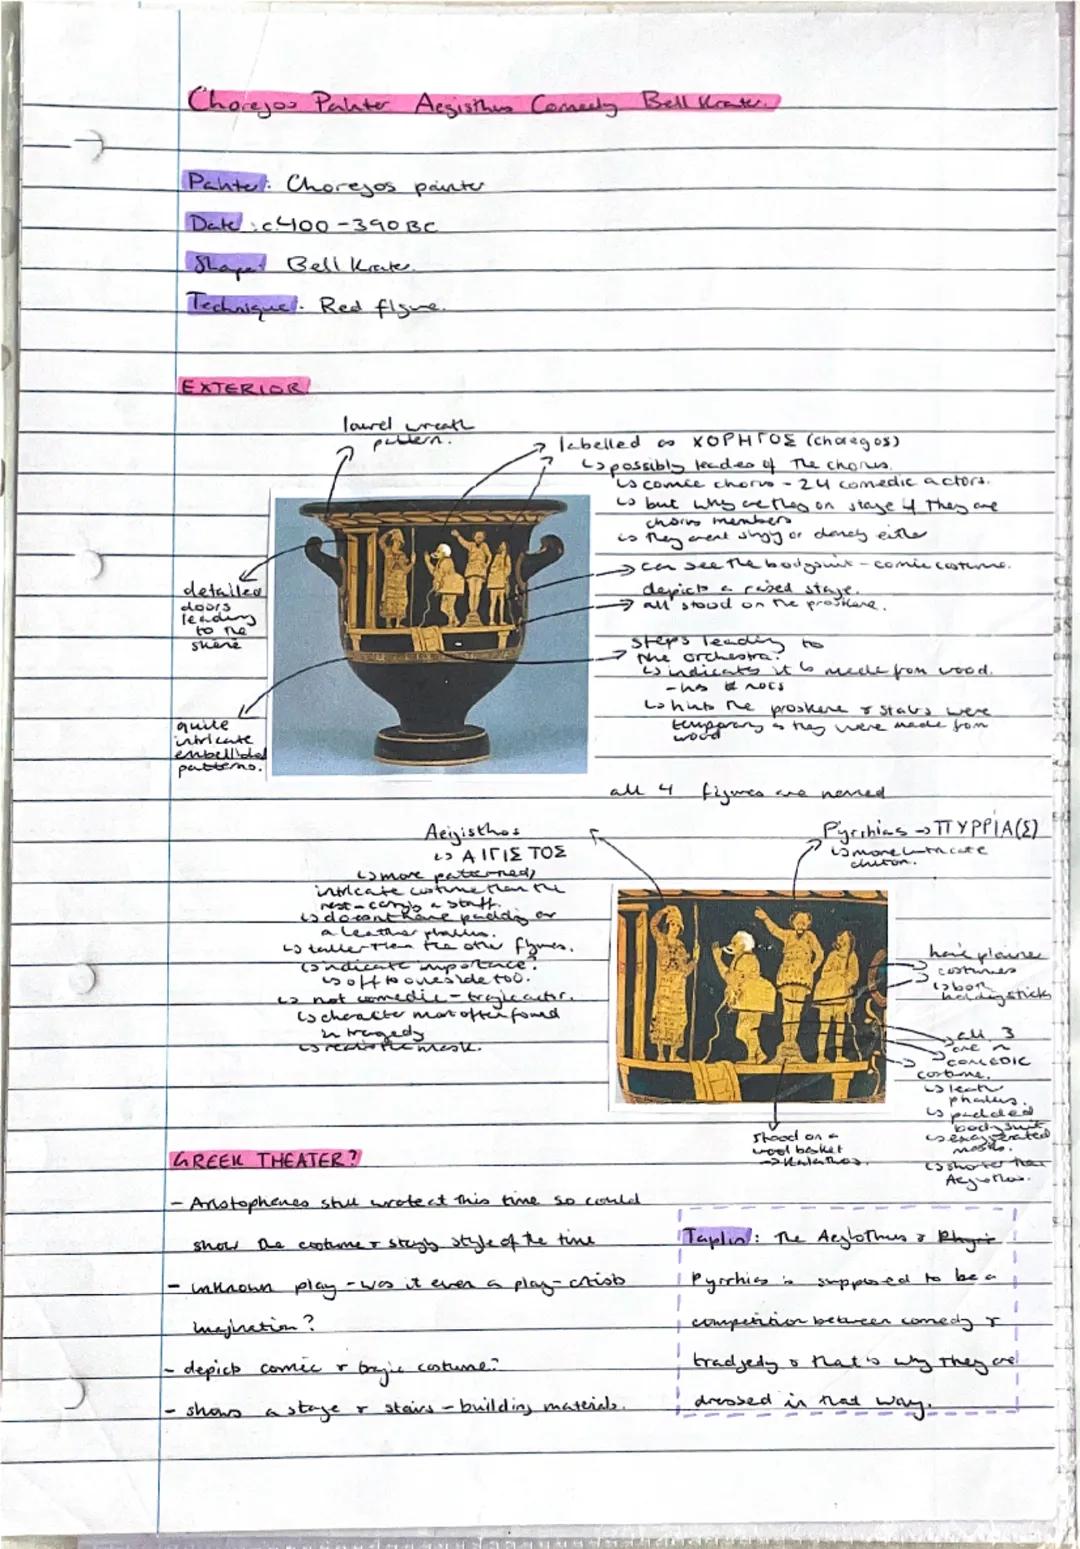 Choregos Painter Aegisthus Comedy Bell Krater.
Painter: Choregos painter
Date: c.400-390 BC
Shape: Bell Krater.
Technique: Red figure.
EXTERIOR
laurel wreath
pattern.
labelled as ΧΟΡΗΓΟΣ (choregos)
↳ possibly leader of the chorus.
↳ comic chorus - 24 comedic actors.
↳ but why are they on stage if they are
chorus members
↳ they arent singing or dancing either
can see the bodysuit - comic costume.
depicts a raised stage.
all stood on the proskene.
detailed
doors
leading
to the
skene
steps leading to
the orchestra.
↳ indicates it is made from wood.
- has knots
↳ hints the proskene & stairs were
temporary as they were made from
wood
quite
intricate
embellished
patterns.
all 4 figures are named
Aeigisthos
↳ ΑΙΓΙΣΤΟΣ
↳ more patterned,
intricate costume than the
rest - carrys a staff.
↳ doesnt have padding or
a leather phallus.
↳ taller than the other figures.
↳ indicate importance?
↳ off to one side too.
↳ not comedic - tragic actor.
↳ character most often found
in tragedy
↳ realistic mask.
Pyrrhias → ΠΥΡΡΙΑ(Σ)
↳ more intricate
chiton.
have plainer
costumes
↳ both
holding sticks
all 3
are in
COMEDIC
costume.
↳ leather
phallus.
↳ padded
bodysuit
↳ exaggerated
masks.
↳ shorter than
Aegisthos.
stood on a
wool basket
→ Kalathos.
GREEK THEATER?
- Aristophanes still wrote at this time so could
show the costume & staging style of the time
- unknown play - was it even a play - artists
imagination?
- depicts comic & tragic costume?
- shows a stage & stairs - building materials.
Taplin: The Aegisthus &
Pyrrhias is supposed to be a
competition between comedy &
tradgedy & that's why they are
dressed in that way.